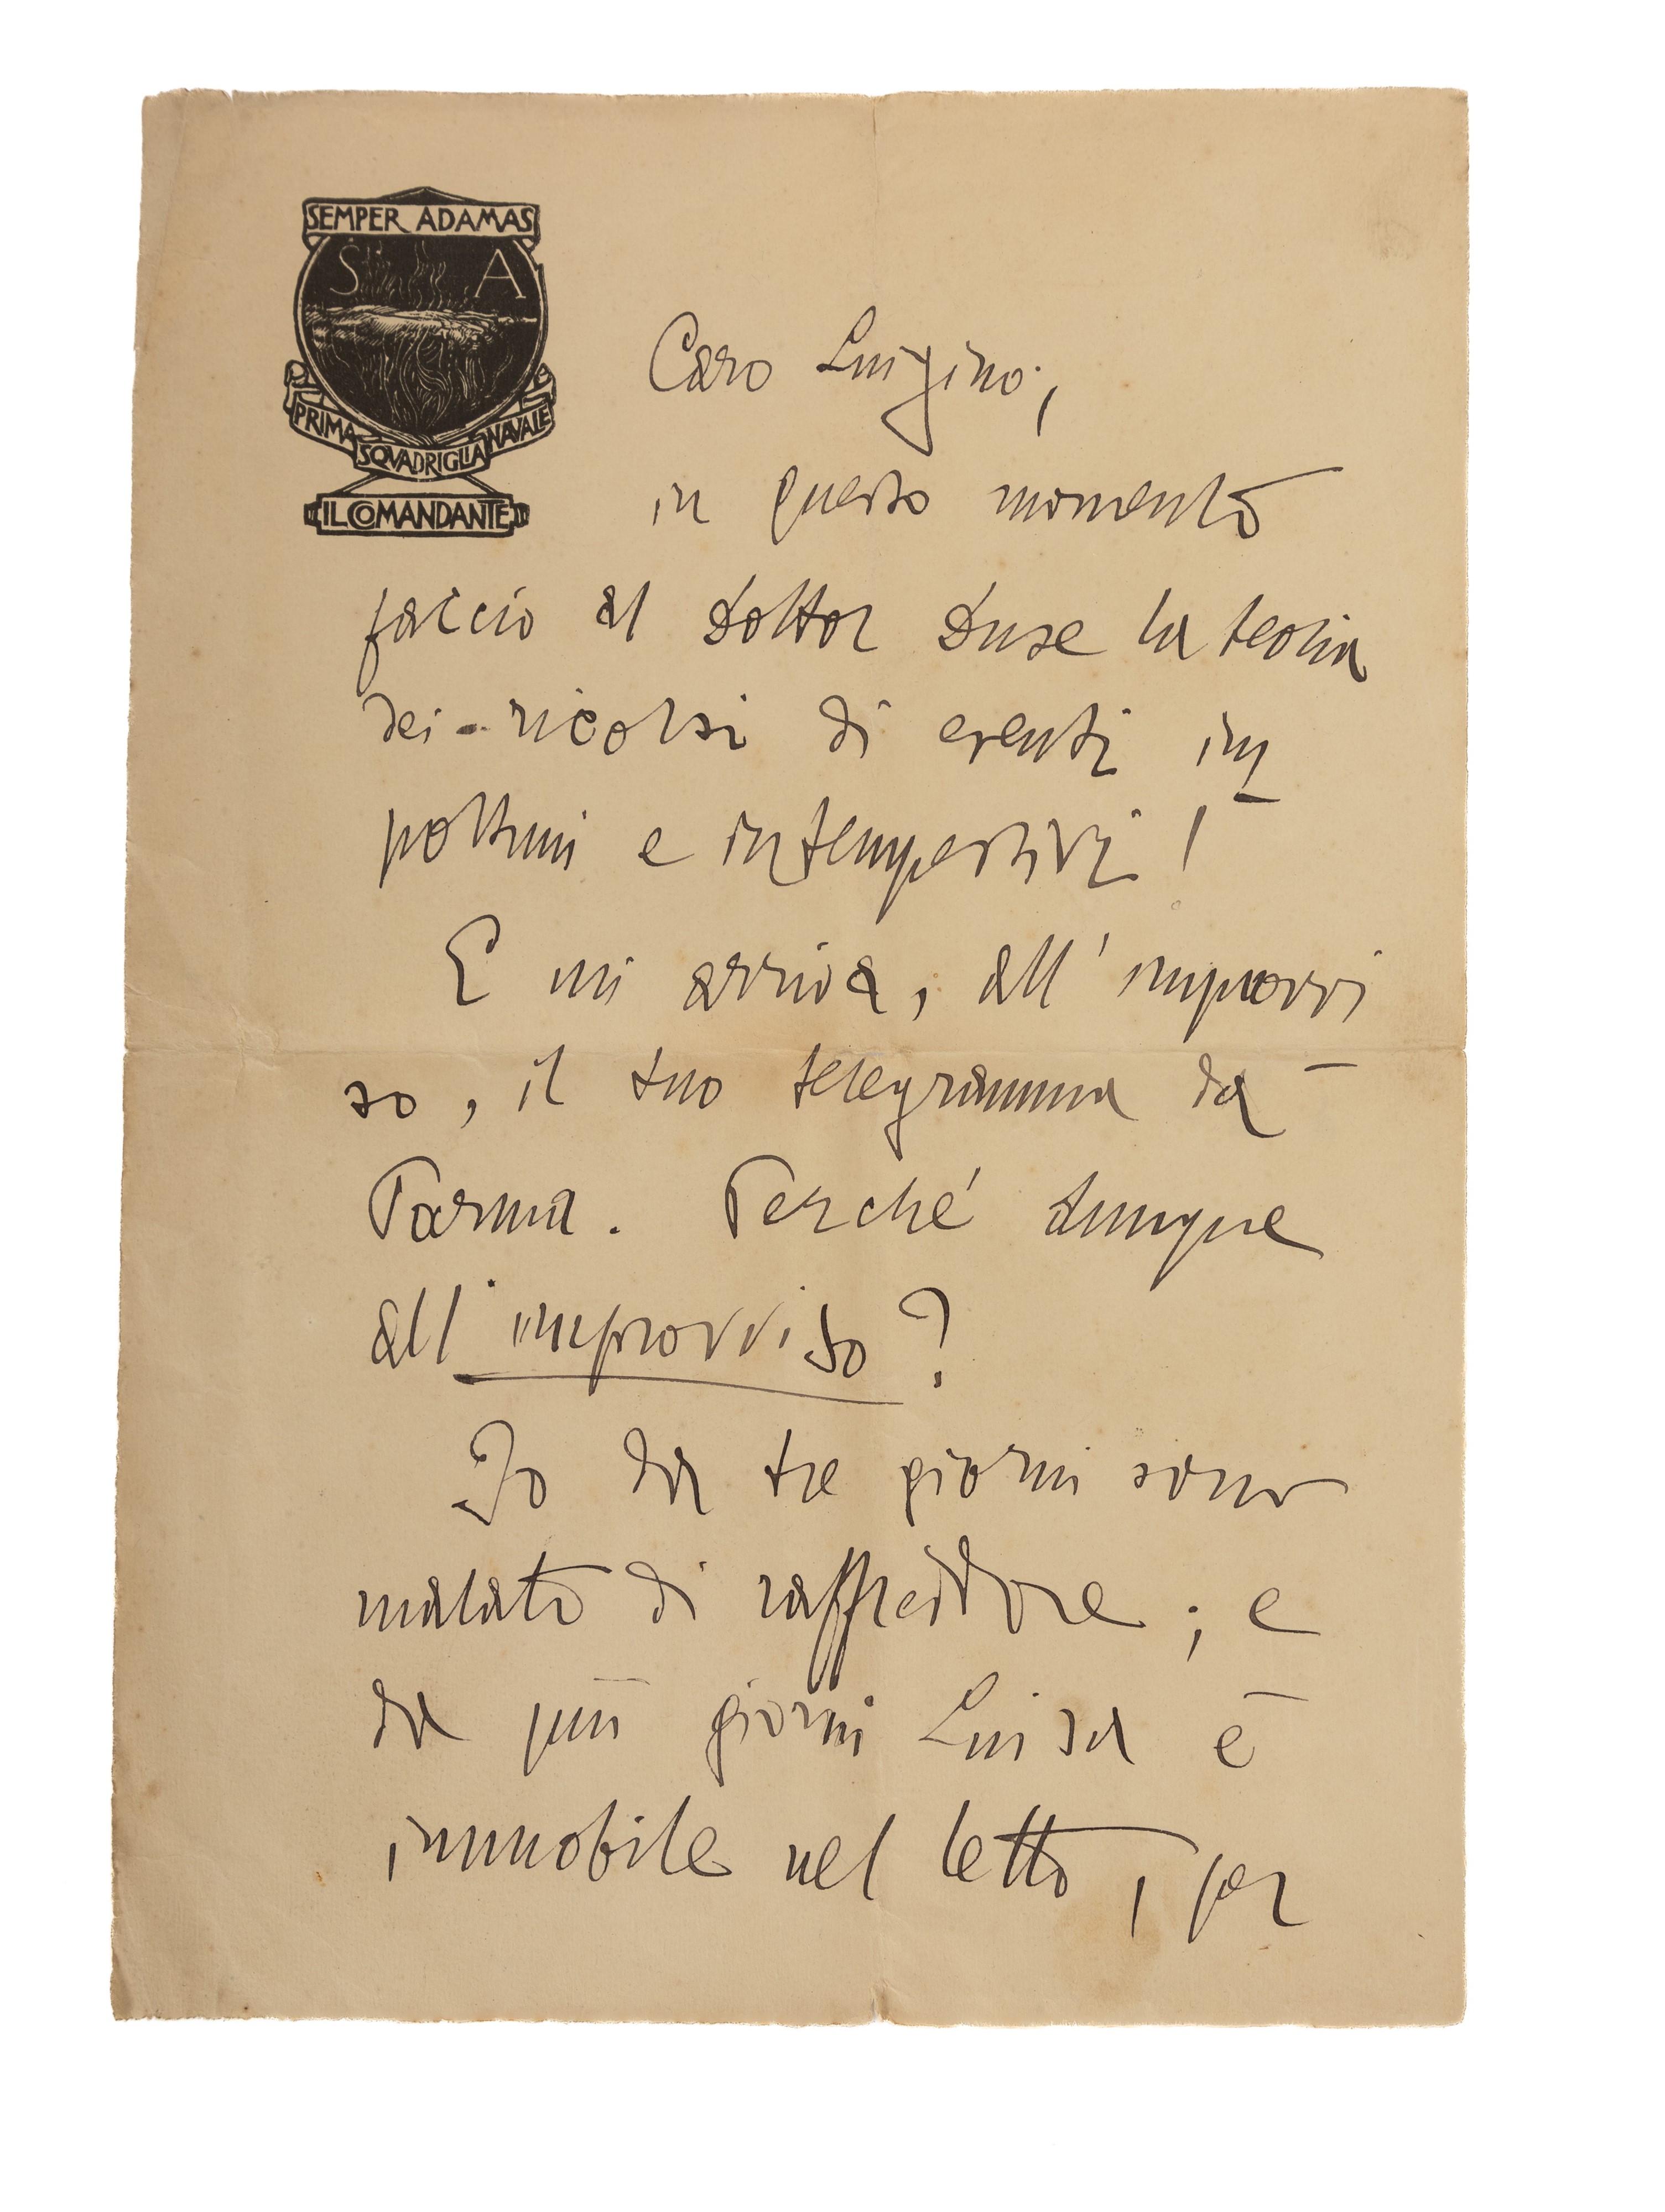 SEMPER ADAMAS
S A
PRIMA SQVADRIGLIA NAVALE
IL COMANDANTE
Caro Luigino,
in questo momento
faccio al dottor Duse la teoria
dei ricorsi di eventi im
portuni e intempestivi!
E mi arriva, all'improvvi
so, il tuo telegramma da
Parma. Perché dunque
all'improvviso?
Io da tre giorni sono
malato di raffreddore; e
da più giorni Luisa è
immobile nel letto, per